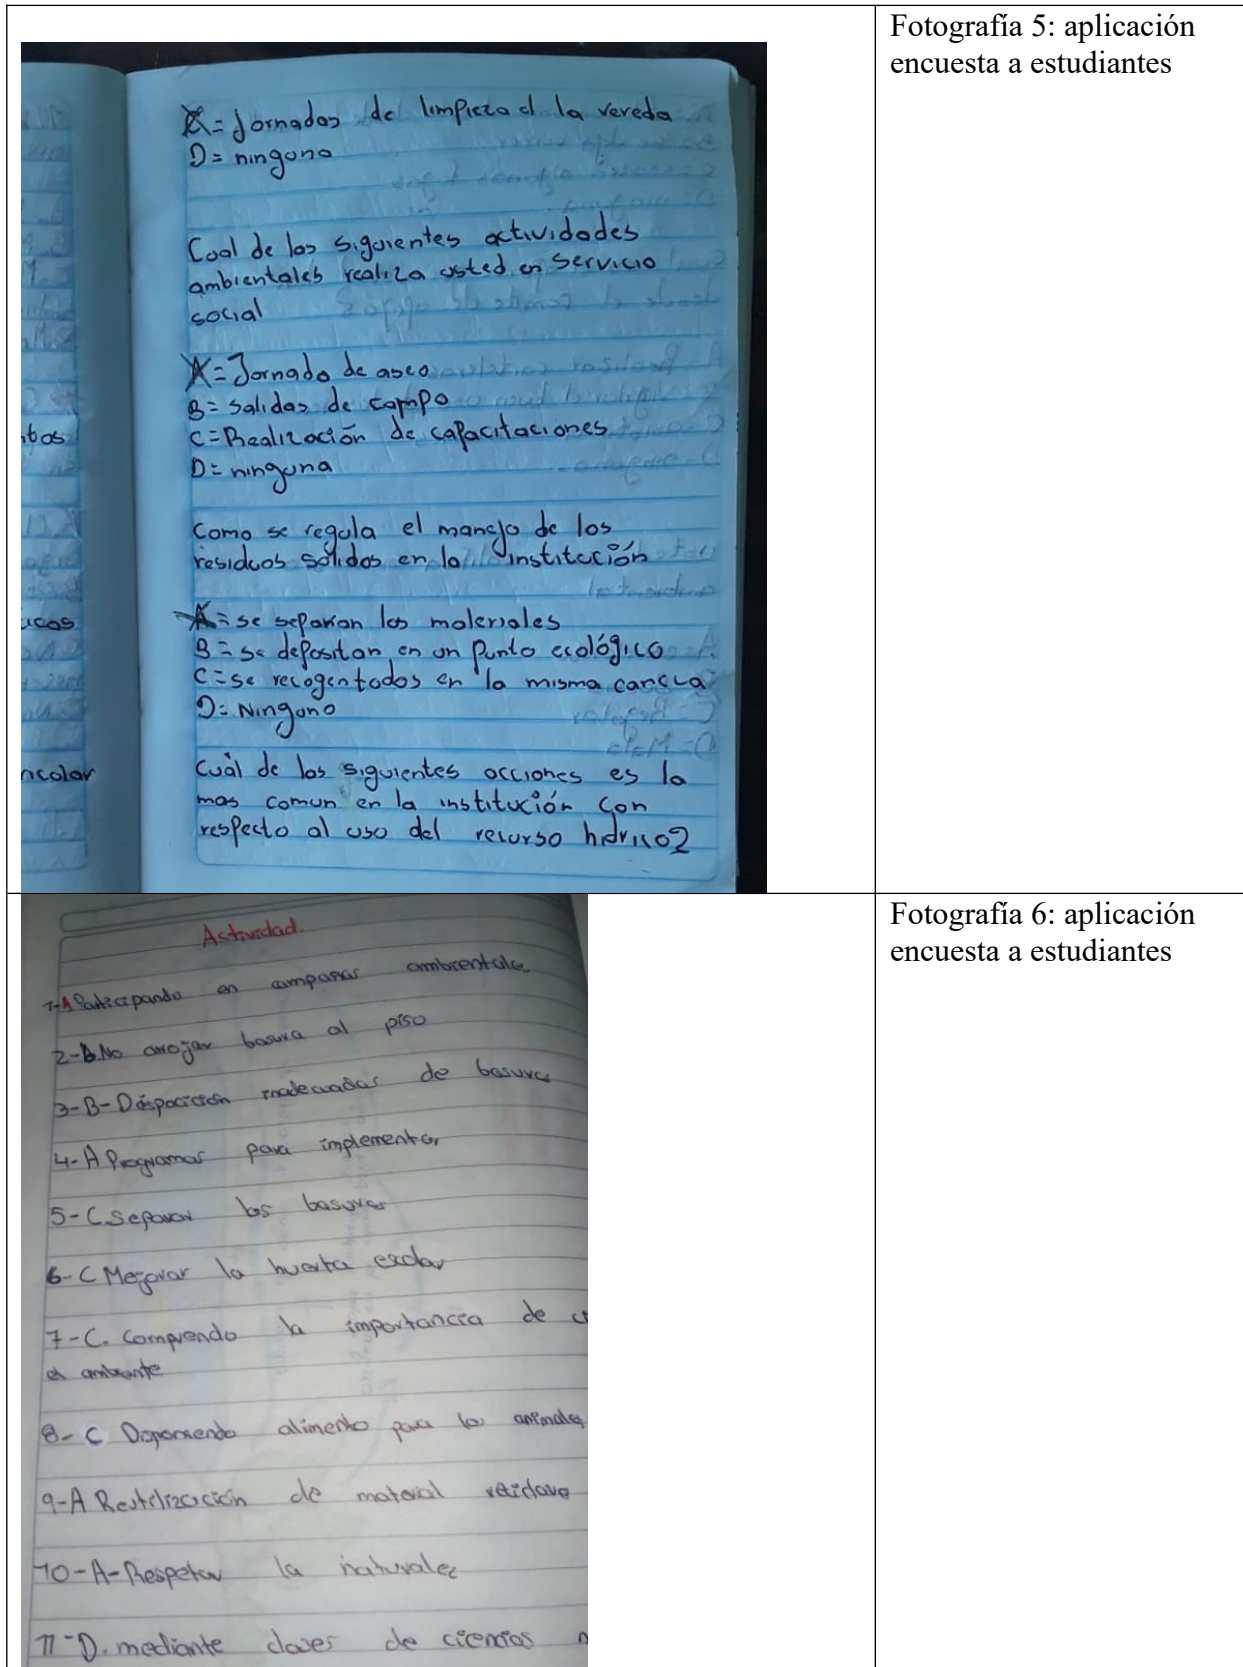 Fotografía 5: aplicación
encuesta a estudiantes
C= Jornadas de limpieza d la vereda
D= ninguna
Cual de las siguientes actividades
ambientales realiza usted en servicio
social
A= Jornada de aseo
B= salidas de campo
C= Realización de capacitaciones
D= ninguna
Como se regula el manejo de los
residuos sólidos en la institución
A= se separan los materiales
B= se depositan en un punto ecológico
C= se recogen todos en la misma caneca
D= Ninguno
Cuál de las siguientes acciones es la
mas comun en la institución con
respecto al uso del recurso hidrico?
Fotografía 6: aplicación
encuesta a estudiantes
Actividad
1-A Participando en campañas ambientale
2-B. No arrojar basura al piso
3-B-Disposicion inadecuadas de basuras
4-A Programas para implementar
5-C Separar las basuras
6-C Mejorar la huerta escolar
7-C. Comprendo la importancia de
el ambiente
8-C Disponiendo alimento para los animales
9-A Reutilización de material
10-A-Respetar la naturalez
11-D. mediante clases de ciencias